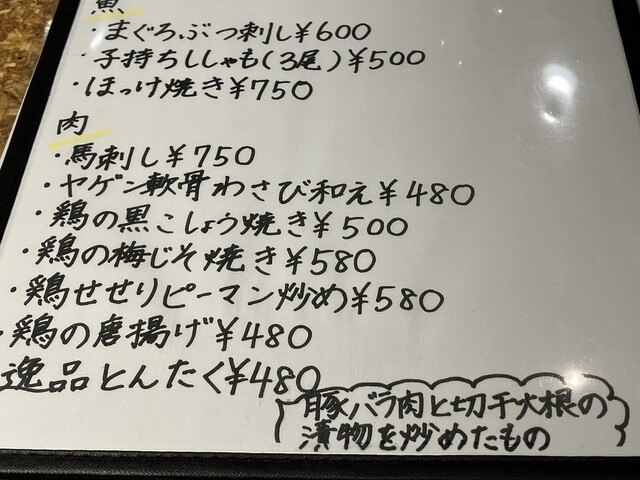 魚
・まぐろぶつ刺し¥600
・子持ちししゃも(3尾)¥500
・ほっけ焼き¥750
肉
・馬刺し¥750
・ヤゲン軟骨わさび和え¥480
・鶏の黒こしょう焼き¥500
・鶏の梅じそ焼き¥580
・鶏せせりピーマン炒め¥580
・鶏の唐揚げ¥480
逸品とんたく¥480
豚バラ肉と切干大根の
漬物を炒めたもの